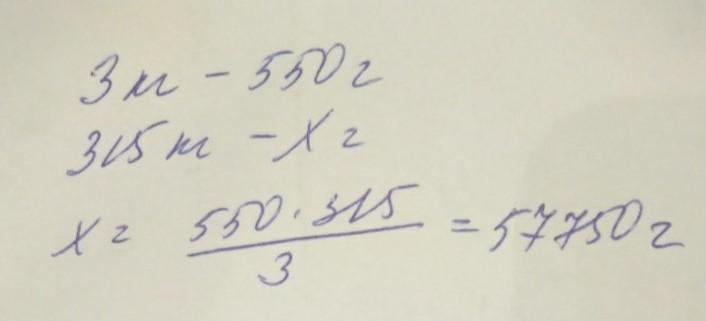 3м - 550г
315м - Xг
X = 550 · 315 / 3 = 57750г